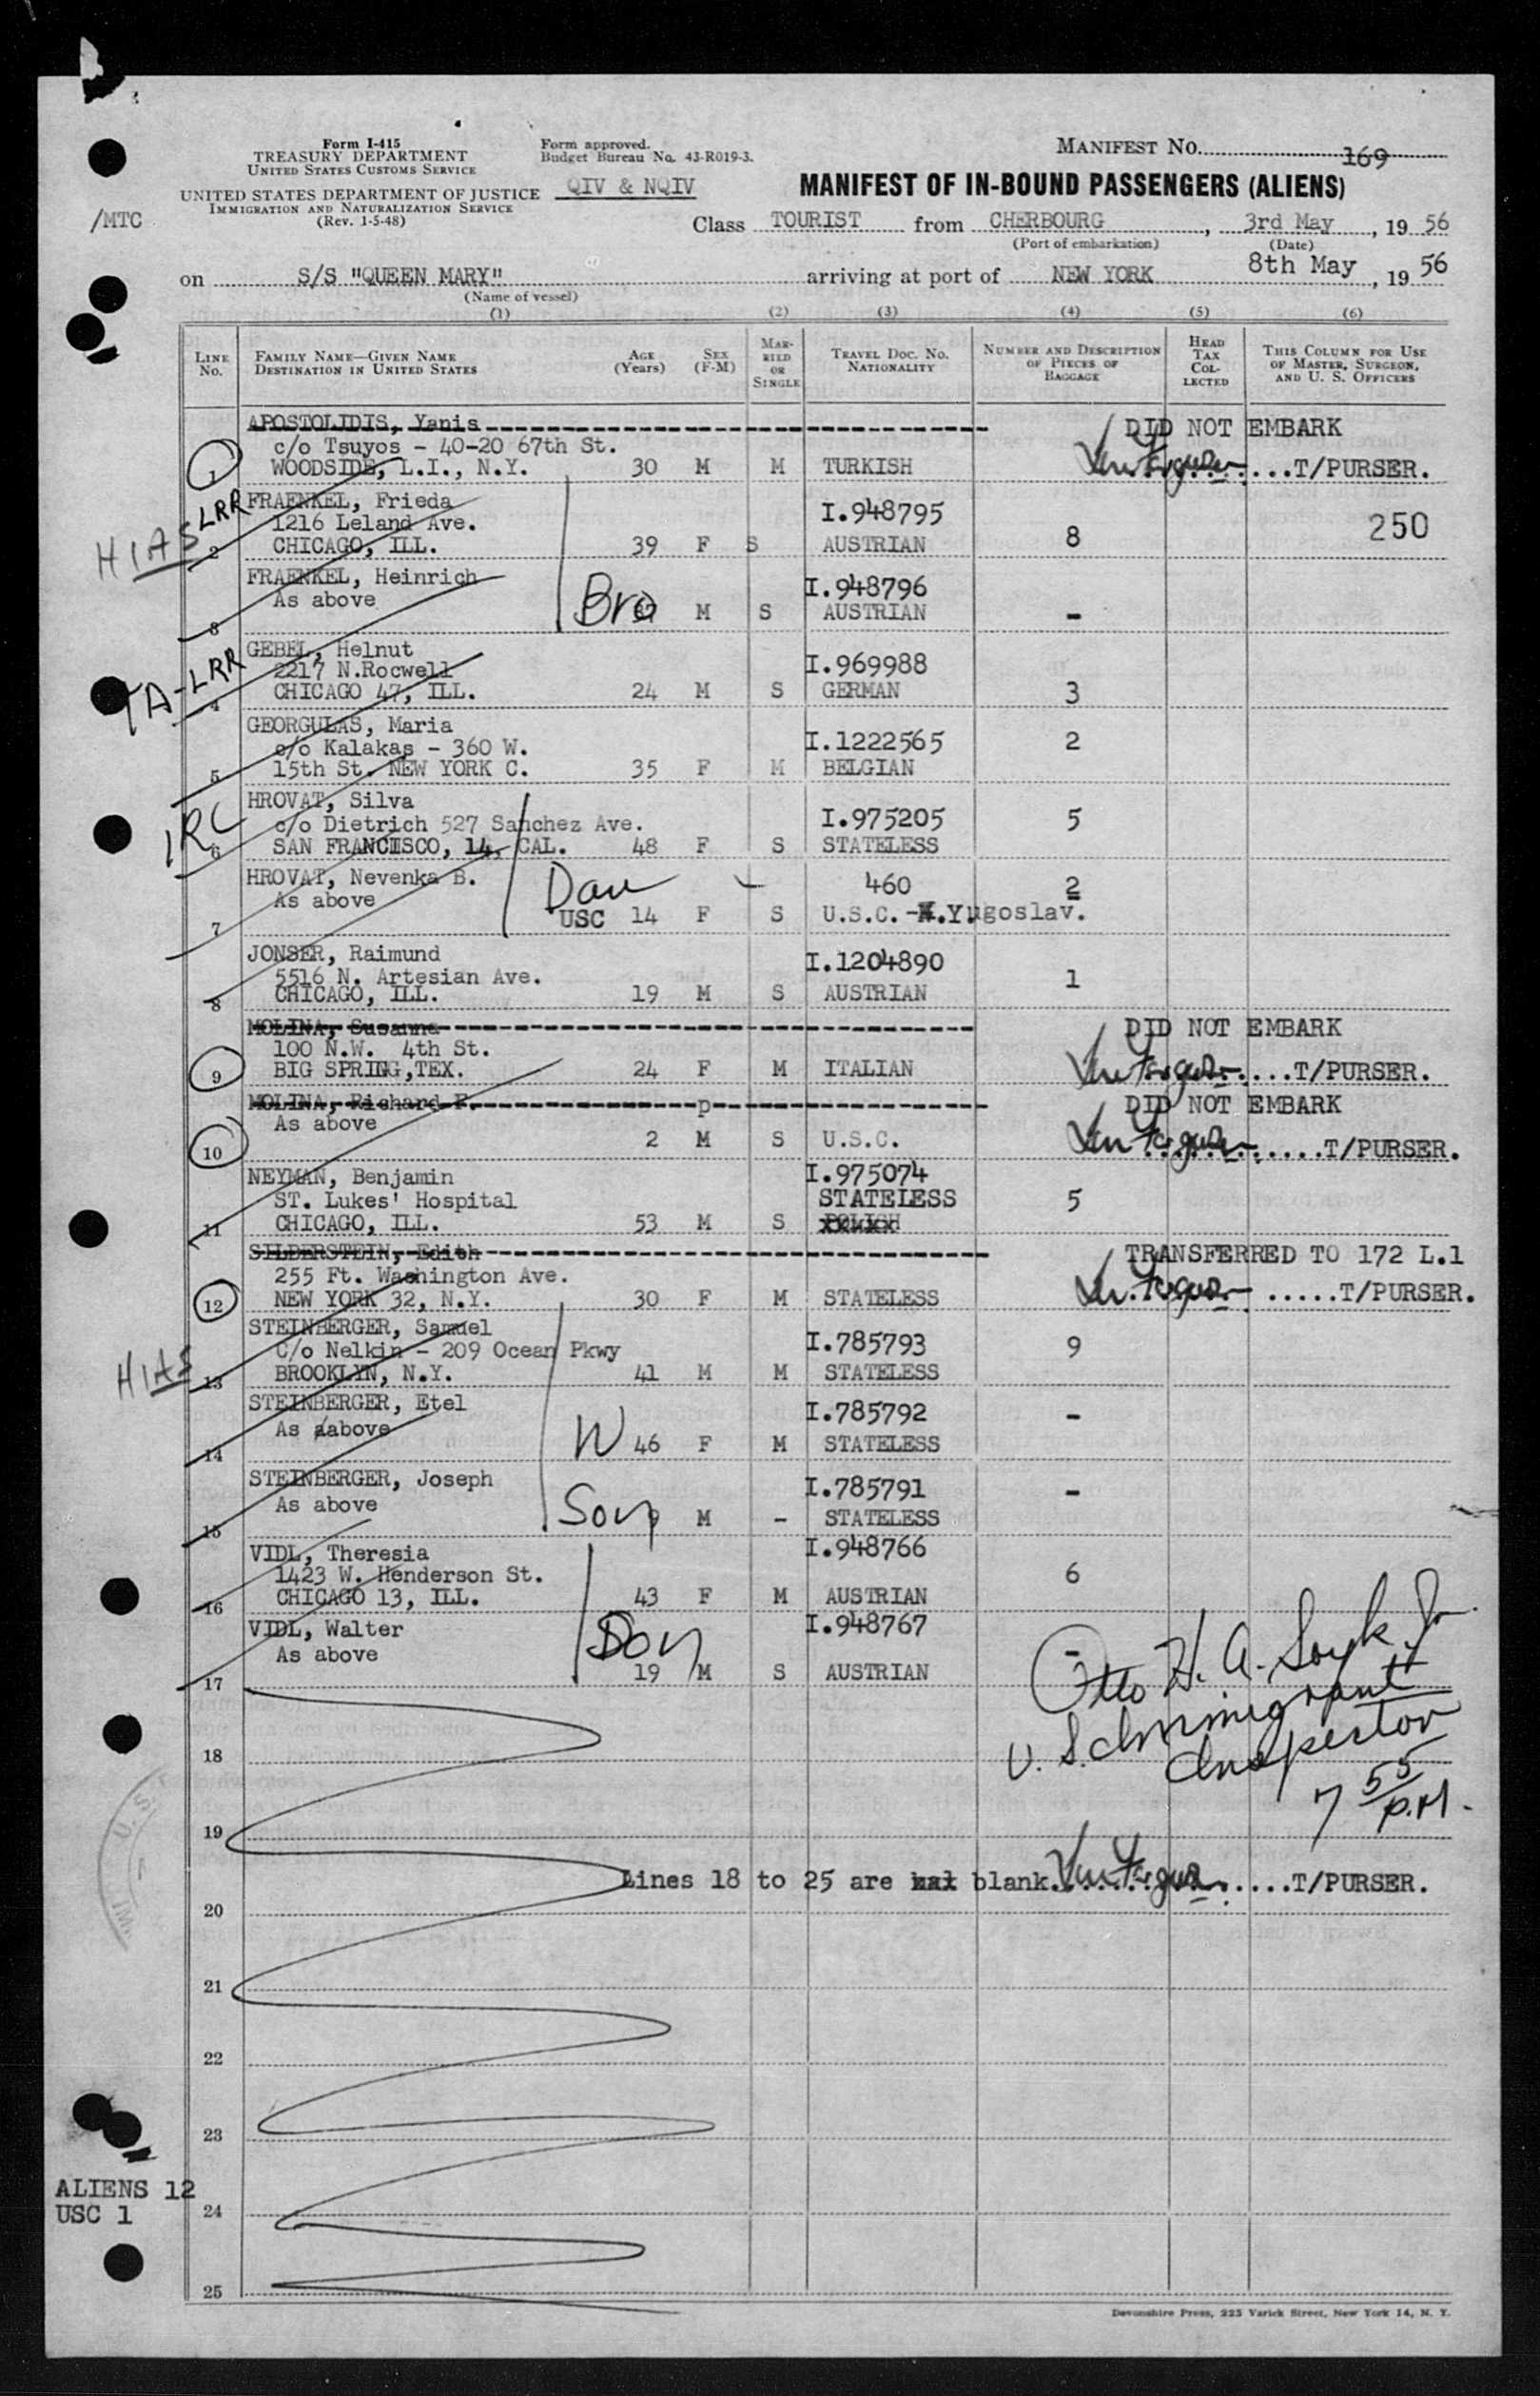 Form I-415
TREASURY DEPARTMENT
UNITED STATES CUSTOMS SERVICE
UNITED STATES DEPARTMENT OF JUSTICE
IMMIGRATION AND NATURALIZATION SERVICE
(Rev. 1-5-48)
/MTC
Form approved.
Budget Bureau No. 43-R019-3.
QIV & NQIV
MANIFEST NO. 169
MANIFEST OF IN-BOUND PASSENGERS (ALIENS)
Class TOURIST from CHERBOURG, 3rd May, 19 56
(Port of embarkation) (Date)
on S/S "QUEEN MARY" arriving at port of NEW YORK 8th May, 19 56
(Name of vessel)
(1) (2) (3) (4) (5) (6)
LINE No. FAMILY NAME—GIVEN NAME DESTINATION IN UNITED STATES AGE (Years) SEX (F-M) MARRIED OR SINGLE TRAVEL DOC. NO. NATIONALITY NUMBER AND DESCRIPTION OF PIECES OF BAGGAGE HEAD TAX COLLECTED THIS COLUMN FOR USE OF MASTER, SURGEON, AND U. S. OFFICERS
APOSTOLIDIS, Yanis DID NOT EMBARK
c/o Tsuyos - 40-20 67th St.
1 WOODSIDE, L.I., N.Y. 30 M M TURKISH ....T/PURSER.
LRR FRAENKEL, Frieda I.948795
1216 Leland Ave. 250
HIAS 2 CHICAGO, ILL. 39 F S AUSTRIAN 8
FRAENKEL, Heinrich I.948796
As above Bro M S AUSTRIAN -
3
GEBEL, Helnut I.969988
TA-LRR 2217 N.Rocwell
4 CHICAGO 47, ILL. 24 M S GERMAN 3
GEORGULAS, Maria I.1222565 2
c/o Kalakas - 360 W.
5 15th St. NEW YORK C. 35 F M BELGIAN
HROVAT, Silva I.975205 5
IRC c/o Dietrich 527 Sanchez Ave.
6 SAN FRANCISCO, 14, CAL. 48 F S STATELESS
HROVAT, Nevenka B. 460 2
As above Dau
7 USC 14 F S U.S.C. - .Yugoslav.
JONSER, Raimund I.1204890
5516 N. Artesian Ave. 1
8 CHICAGO, ILL. 19 M S AUSTRIAN
MOLINA, Susanna DID NOT EMBARK
100 N.W. 4th St.
9 BIG SPRING,TEX. 24 F M ITALIAN ....T/PURSER.
MOLINA, Richard P. p DID NOT EMBARK
As above
10 2 M S U.S.C. .....T/PURSER.
NEYMAN, Benjamin I.975074
ST. Lukes' Hospital STATELESS 5
11 CHICAGO, ILL. 53 M S POLISH
SILDERSTEIN, Edith TRANSFERRED TO 172 L.1
255 Ft. Washington Ave.
12 NEW YORK 32, N.Y. 30 F M STATELESS .....T/PURSER.
STEINBERGER, Samuel I.785793 9
C/o Nelkin - 209 Ocean Pkwy
HIAS 13 BROOKLYN, N.Y. 41 M M STATELESS
STEINBERGER, Etel I.785792 -
As aabove W
14 46 F M STATELESS
STEINBERGER, Joseph I.785791 -
As above Son
15 M - STATELESS
VIDL, Theresia I.948766
1423 W. Henderson St. 6
16 CHICAGO 13, ILL. 43 F M AUSTRIAN
VIDL, Walter I.948767
As above Son -
17 19 M S AUSTRIAN
Otto H. A. Jr
U. S. Immigrant
Inspector
7 55 P.M.
18
19
Lines 18 to 25 are blank. .....T/PURSER.
20
21
22
23
24
25
ALIENS 12
USC 1
U. S.
Devonshire Press, 225 Varick Street, New York 14, N. Y.